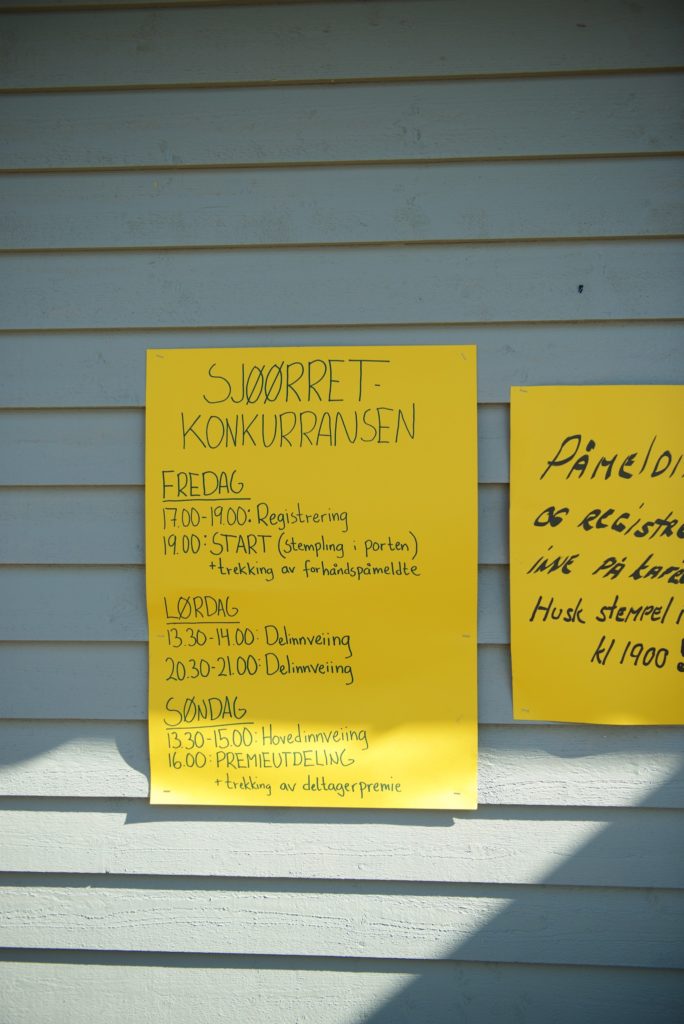 SJØØRRET-
KONKURRANSEN
FREDAG
17.00-19.00: Registrering
19.00: START (stempling i porten)
+ trekking av forhåndspåmeldte
LØRDAG
13.30-14.00: Delinnveiing
20.30-21.00: Delinnveiing
SØNDAG
13.30-15.00: Hovedinnveiing
16.00: PREMIEUTDELING
+ trekking av deltagerpremie
OG
INNE PÅ
Husk stempel
kl 1900